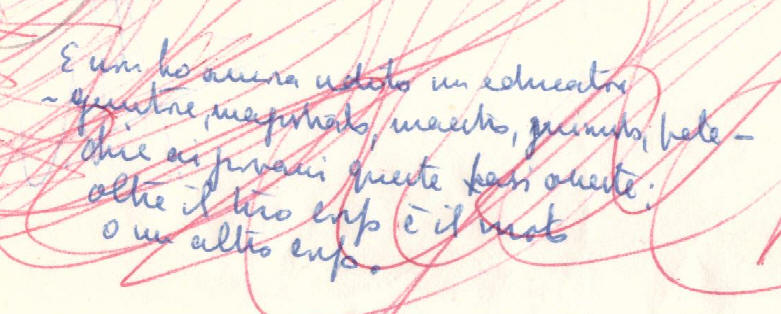 E non ho ancora udito un educatore
– genitore, magistrato, maestro,
dire ai giovani queste frasi oneste:
oltre il tuo corpo è il vuoto
o un altro corpo.